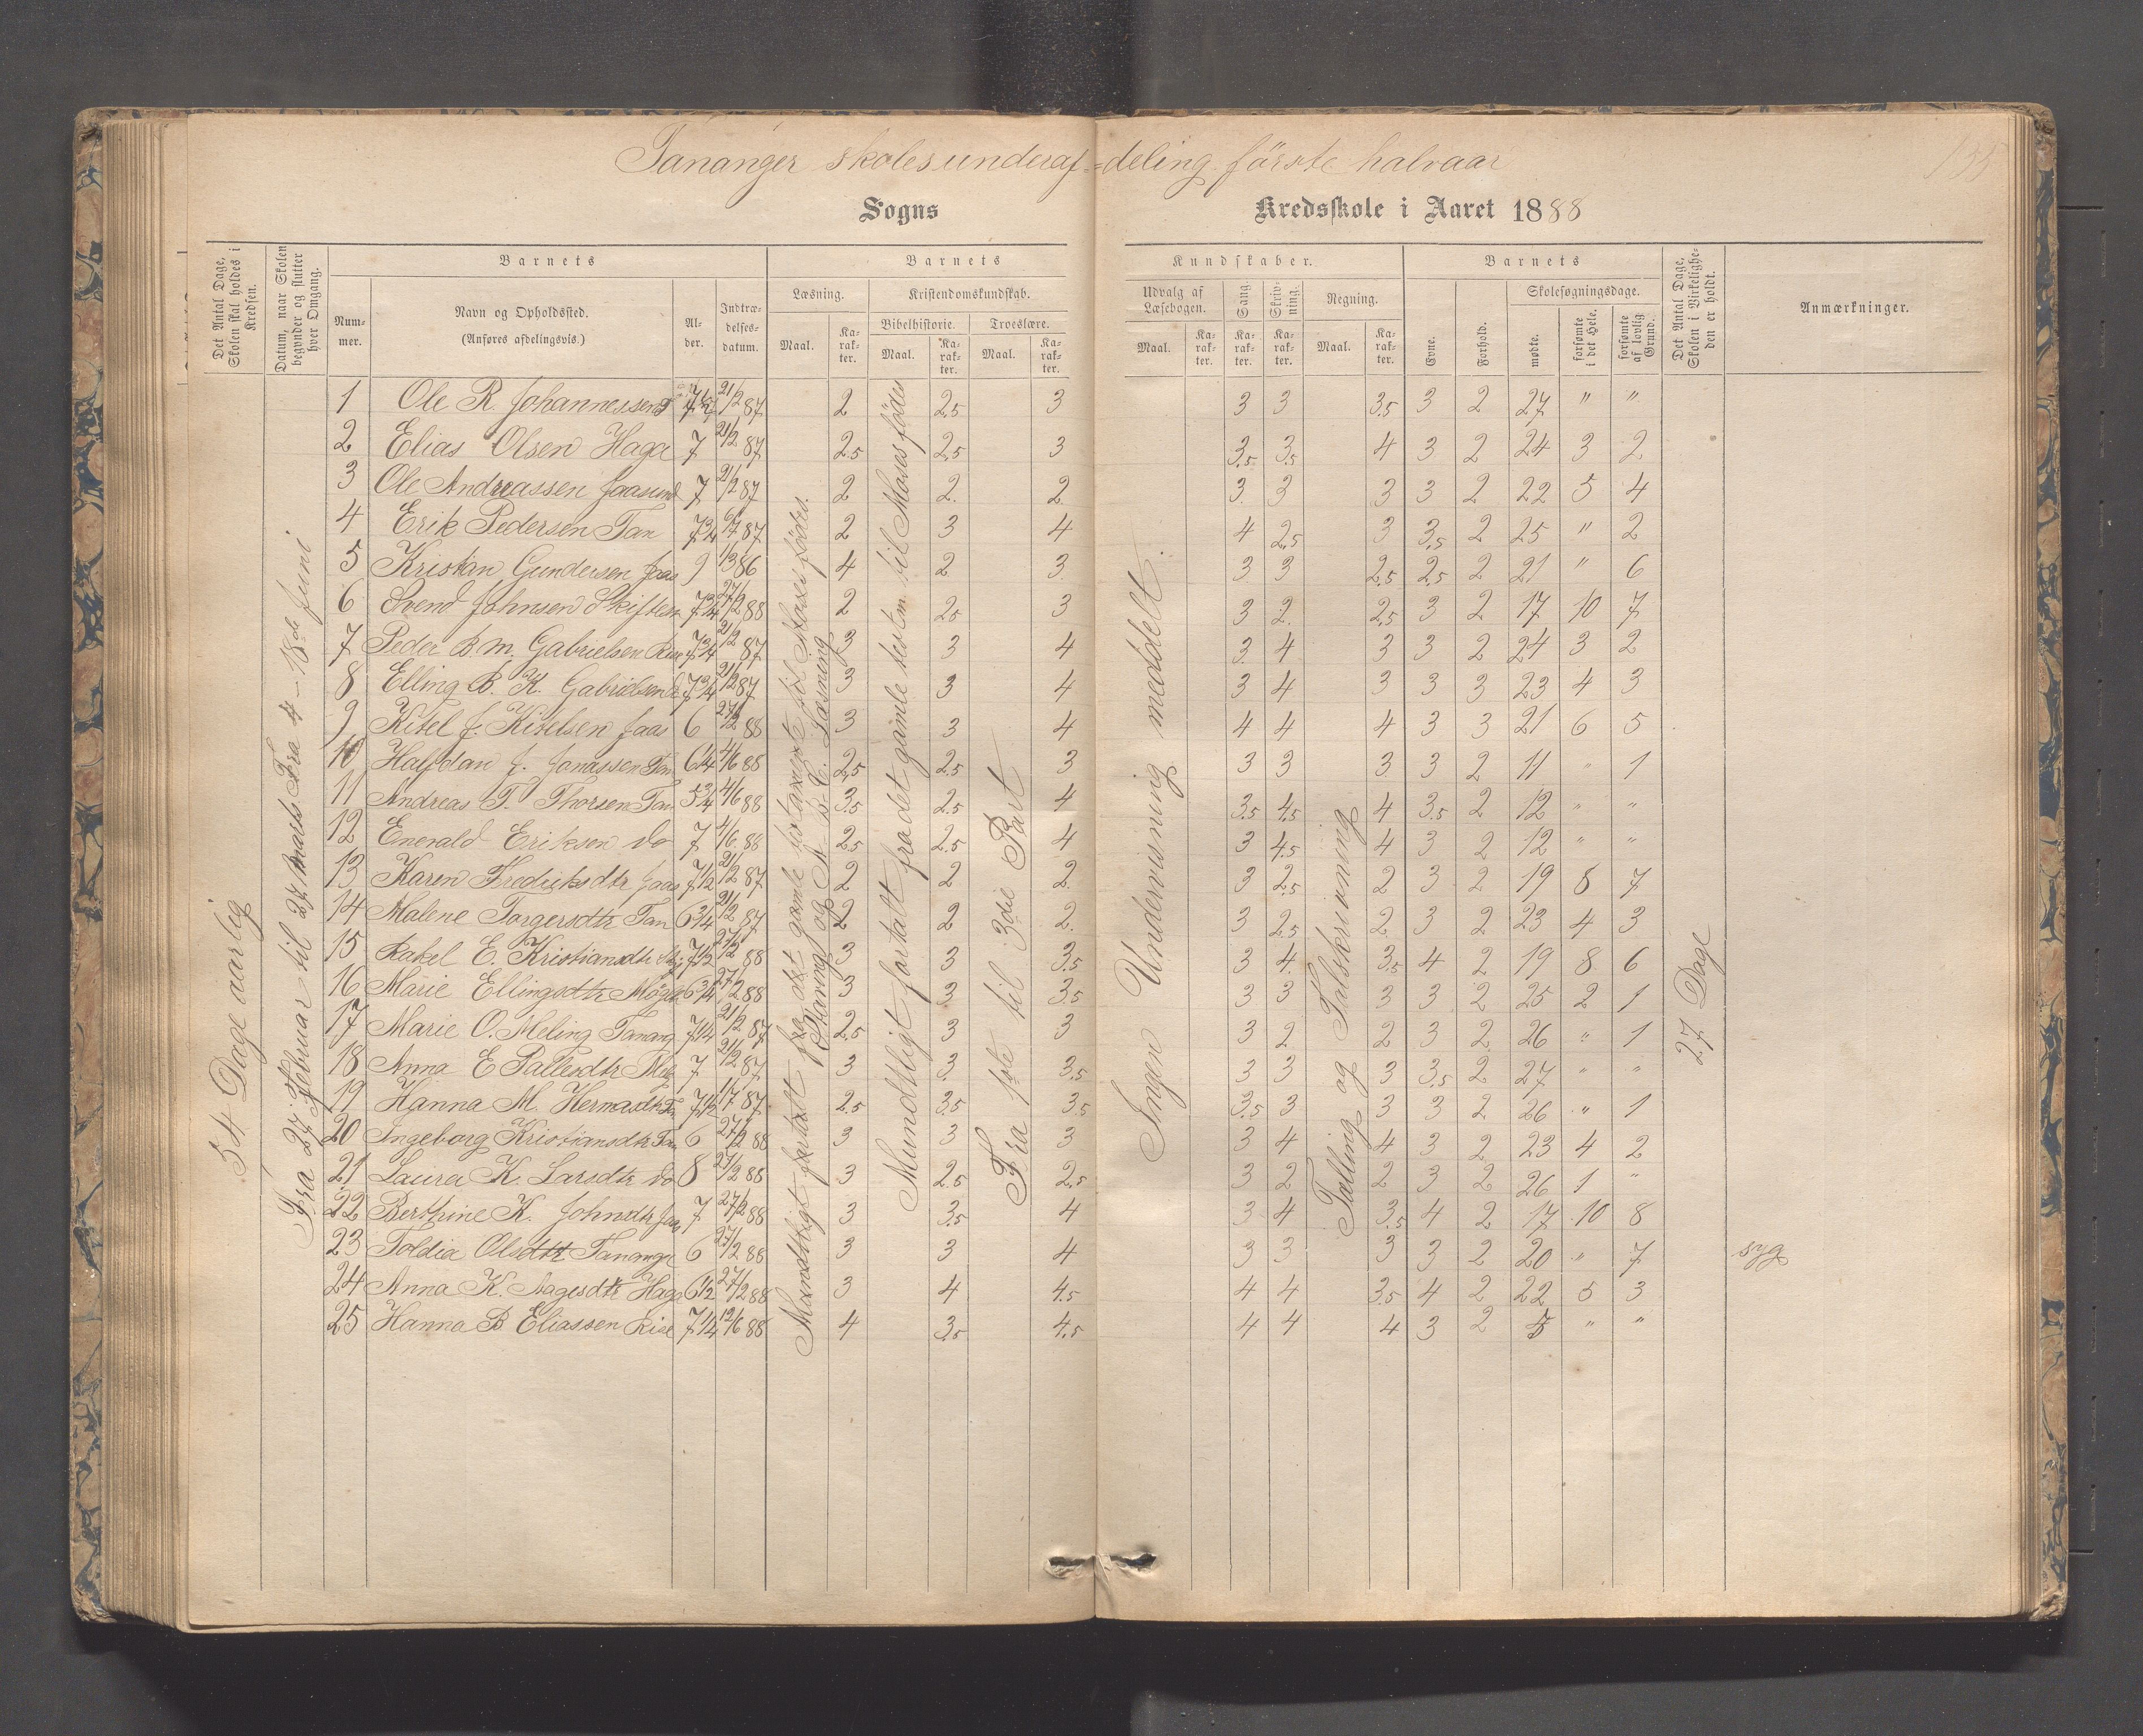 Tananger skoles underaf-deling første halvaar
135
Sogns Kredsskole i Aaret 1888
Det Antal Dage, Skolen skal holdes i Kredsen.
Datum, naar Skolen begynder og slutter hver Omgang.
Barnets
Nummer.
Navn og Opholdssted. (Anføres afdelingsvis.)
Alder.
Indtrædelsesdatum.
Barnets
Læsning.
Maal.
Karakter.
Kristendomskundskab.
Bibelhistorie.
Maal.
Karakter.
Troeslære.
Maal.
Karakter.
Kundskaber.
Udvalg af Læsebogen.
Maal.
Karakter.
Sang.
Karakter.
Skrivning.
Karakter.
Regning.
Maal.
Karakter.
Barnets
Evne.
Forhold.
Skolesøgningsdage.
mødte.
forsømte i det Hele.
forsømte af lovlig Grund.
Det Antal Dage, Skolen i Virkeligheden er holdt.
Anmærkninger.
54 Dage aarlig
Fra 27. Februar til 27 Marts Fra 4 – 18de Juni
Mundtligt fortalt fra det gamle testamente til Moses fødes.
Staving og A-B-C. Læsning
Mundtligt fortalt fra det gamle testm. til Moses fødes
Fra 1ste til 3die Part
Ingen Undervisning meddelt.
Tælling og Talskrivning
27 Dage
1 Ole R. Johannessen 21/2 87 2 2,5 3 3 3 3,5 3 2 27 " "
2 Elias Olsen Haga 7 21/2 87 2,5 2,5 3 3,5 3,5 4 3 2 24 3 2
3 Ole Andreassen Jaasund 7 21/2 87 2 2 2 3 3 3 3 2 22 5 4
4 Erik Pedersen Tan 7 3/4 6/7 87 2 3 4 4 2,5 3 3,5 2 25 " 2
5 Kristian Gundersen Jaas 9 1/3 86 4 2 3 3 3 2,5 2,5 2 21 " 6
6 Svend Johnsen Skiftesv 7 3/4 27/2 88 2 2,5 3 3 2 2,5 3 2 17 10 7
7 Peder B. M. Gabrielsen Risn 7 3/4 21/2 87 3 3 4 3 4 3 3 2 24 3 2
8 Elling B. K. Gabrielsen 7 3/4 21/2 87 3 3 4 3 4 3 3 3 23 4 3
9 Kitel J. Kitelsen Jaas 6 27/2 88 3 3 4 4 4 4 3 3 21 6 5
10 Halfdan J. Jonassen Tan 6 1/4 4/6 88 2,5 2,5 3 3 3 3 3 2 11 " 1
11 Andreas T. Thorsen Tan 5 3/4 4/6 88 3,5 2,5 4 3,5 4,5 4 3,5 2 12 " "
12 Enevald Eriksen do 7 4/6 88 2,5 2,5 4 3 4,5 4 3 2 12 " "
13 Karen Fredriksdtr Jaas 7 1/2 21/2 87 2 2 2 3 2,5 2 3 2 19 8 7
14 Malene Torgersdtr Tan 6 3/4 21/2 87 2 2 2 3 2,5 2 3 2 23 4 3
15 Rakel E. Kristiansdtr 7 1/2 27/2 88 3 3 3,5 3 4 3,5 4 2 19 8 6
16 Marie Ellingsdtr 6 3/4 27/2 88 3 3 3,5 3 3 3 3 2 25 2 1
17 Marie O. Meling Tanang 7 1/4 21/2 87 2,5 3 3 3 2 2 3 2 26 " 1
18 Anna E Pallesdtr 7 21/2 87 3 3 3,5 3 3 3 3,5 2 27 " "
19 Hanna M. Hermandtr Tan 7 1/2 11/7 87 2,5 3,5 3,5 3,5 3 3 3 2 26 " 1
20 Ingeborg Kristiansdtr Tan 6 27/2 88 3 3 3 3 4 4 3 2 23 4 2
21 Laura K. Larsdtr do 8 27/2 88 3 2,5 2,5 3 2 2 3 2 26 1 "
22 Berthine K. Johndtr Jaas 7 27/2 88 3 3,5 4 3 4 3,5 4 2 17 10 8
23 Toldia Olsdtr Tananger 6 27/2 88 3 3 4 3 3 3 3 2 20 " 7 syg
24 Anna K. Aagesdtr Haga 6 1/2 27/2 88 3 4 4,5 4 4 3,5 4 2 22 5 3
25 Hanna B Eliassen Risn 7 1/4 12/6 88 4 3,5 4,5 4 4 4 3 2 5 " "